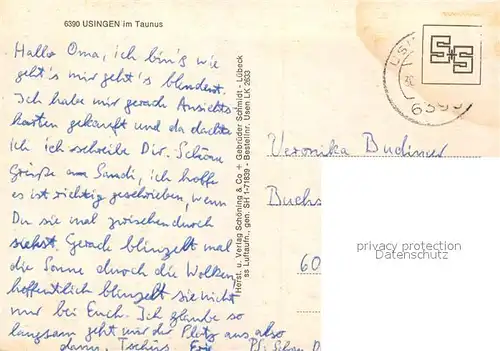 6390 USINGEN im Taunus
Hallo Oma, ich bin's wie
geht's mir geht's blendent.
Ich habe mir gerade Ansichts
karten gekauft und da dachte
ich ich schreibe Dir. Schöne
Grüße an Sandi, ich hoffe
es ist richtig geschrieben, wenn
Du sie mal zwischendurch
siehst. Gerade blinzelt mal
die Sonne durch die Wolken
hoffentlich blinzelt sie nicht
nur bei Euch. Ich glaube so
langsam geht mir der Platz aus also
dann, Tschüs.
Horst. u. Verlag Schöning & Co + Gebrüder Schmidt - Lübeck
ss Luftaufn. gen. SH 1-71839 - Bestellnr. Usen LK 2633
S+S
Veronika Budiner
Buchs
60
privacy protection
watermark